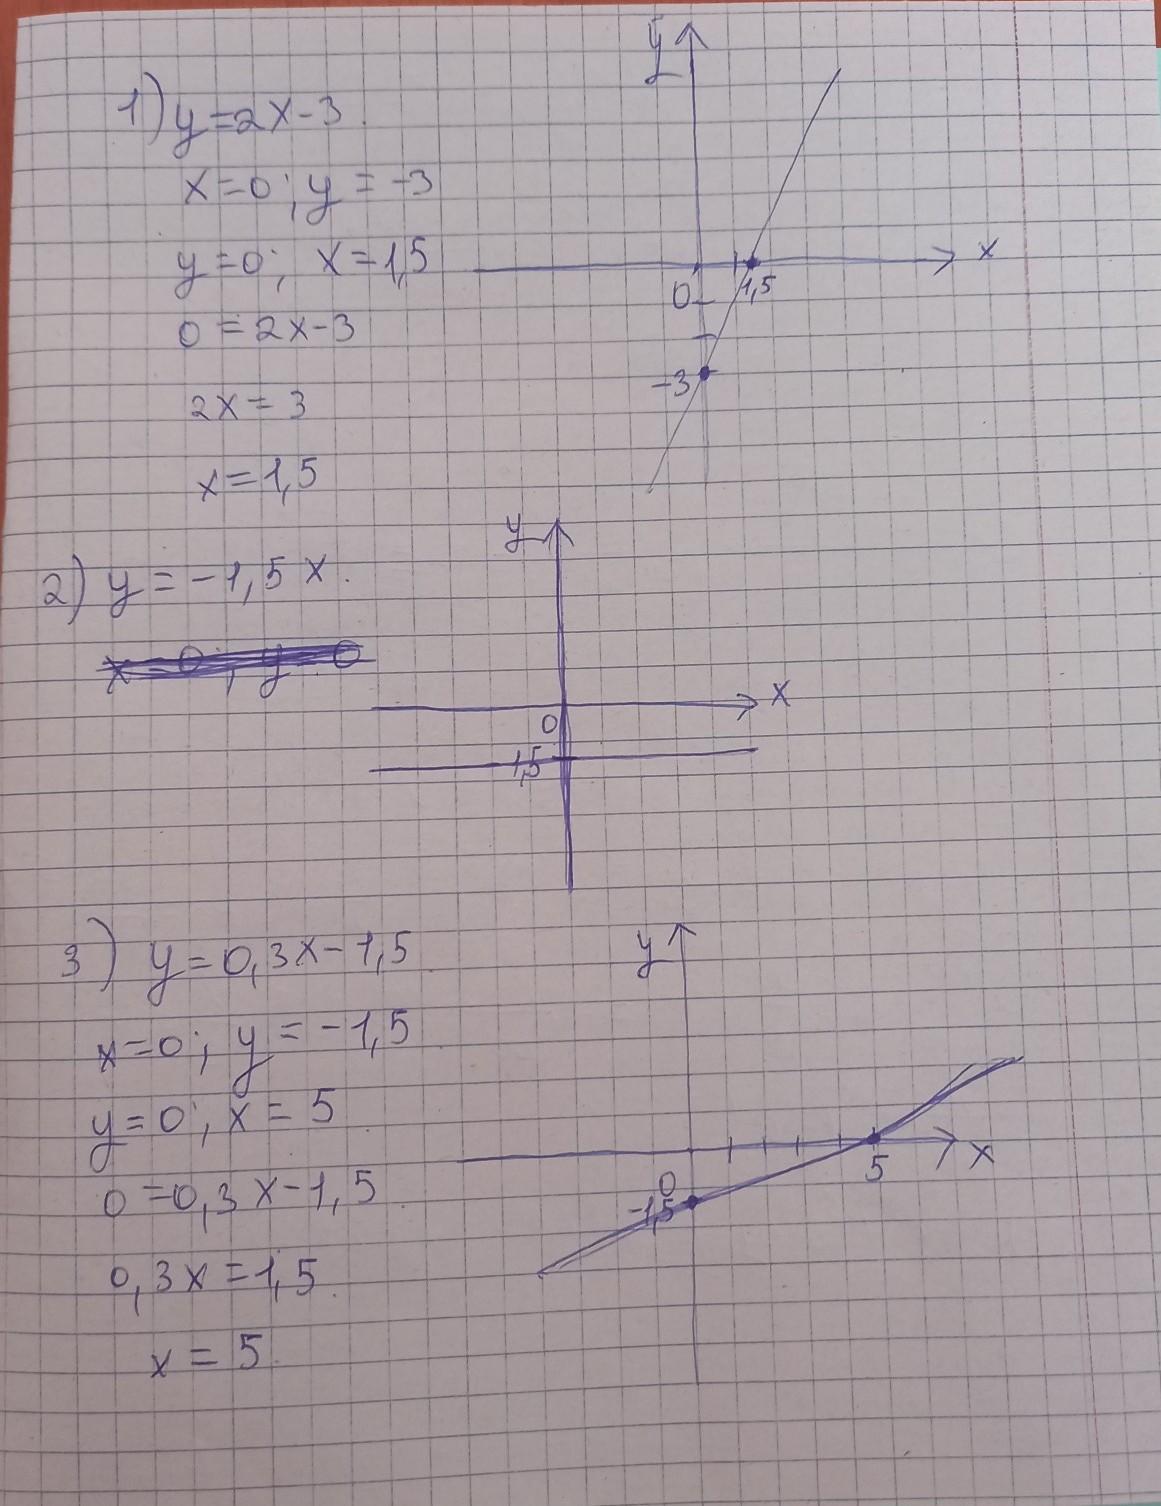 1) y=2x-3.
x=0; y=-3
y=0; x=1,5
0=2x-3
2x=3
x=1,5
y
x
0
1,5
-3
2) y=-1,5x.
x=0; y=0
y
x
0
1,5
3) y=0,3x-1,5
x=0; y=-1,5
y=0; x=5
0=0,3x-1,5
0,3x=1,5
x=5
y
x
5
0
-1,5